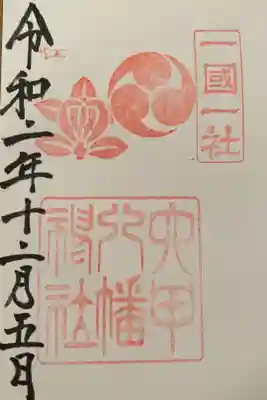 一國一社
六甲
八幡
神社
令和二年十二月五日